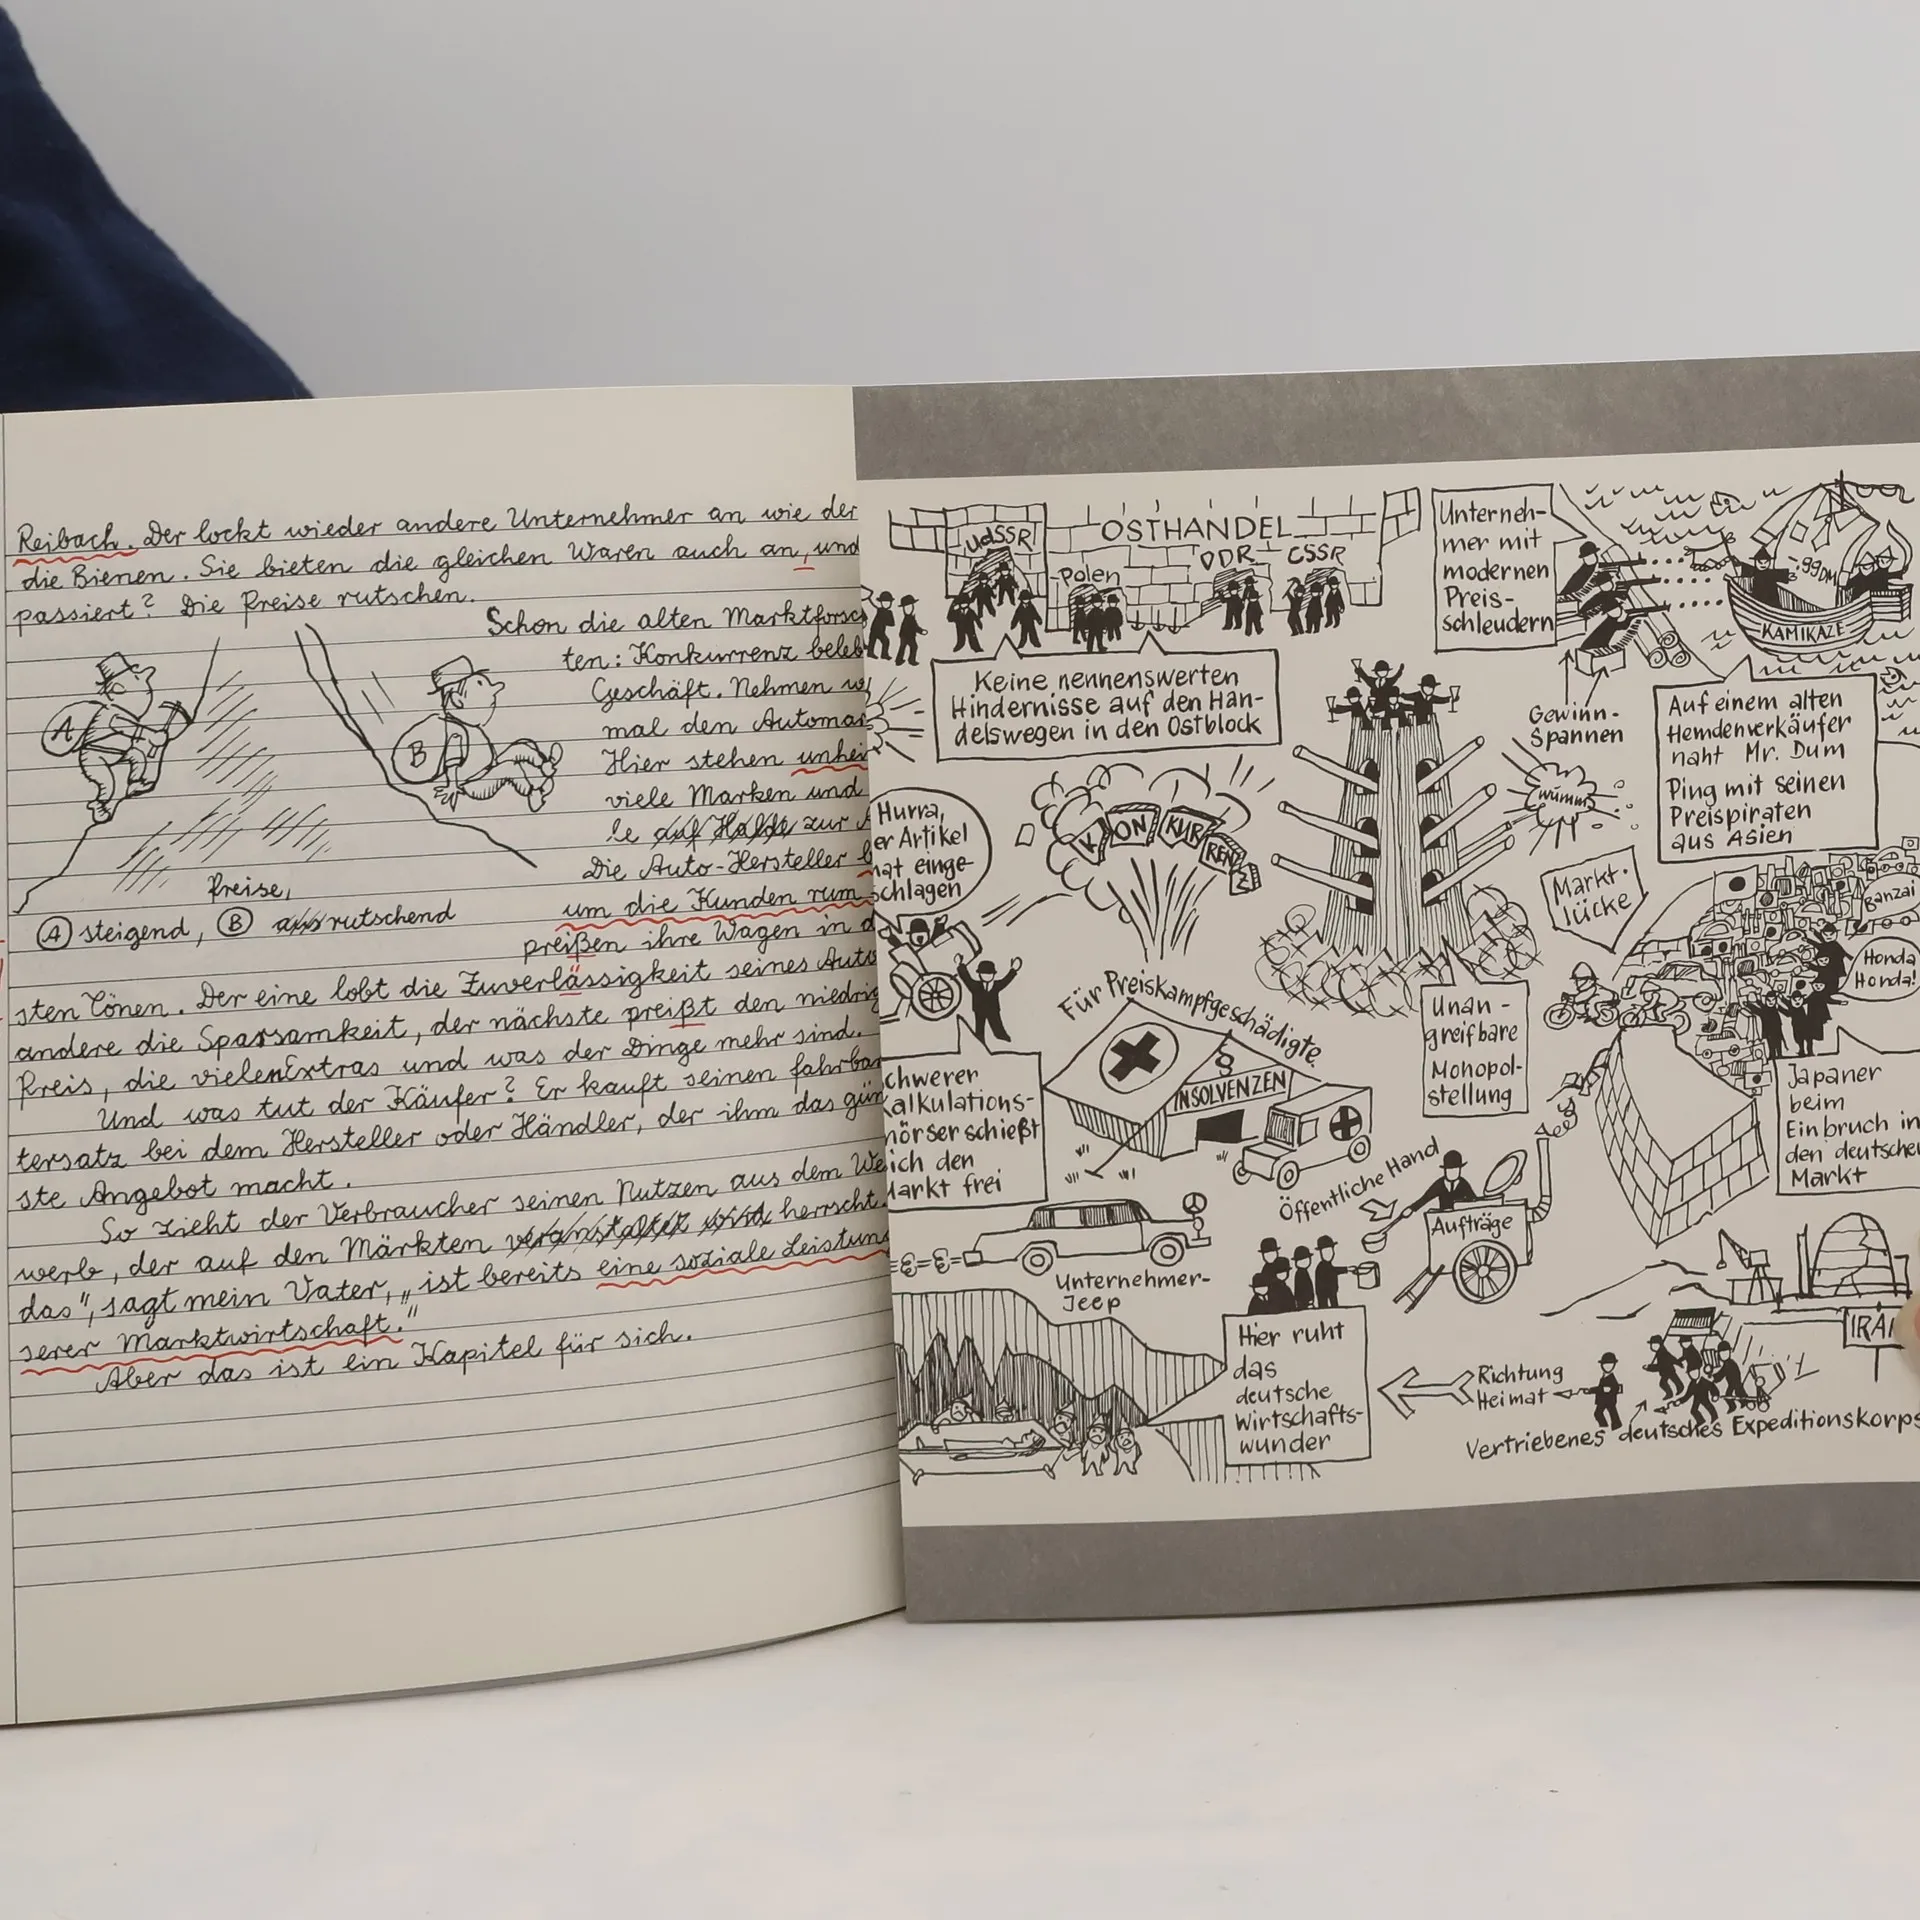 Reibach. Der lockt wieder andere Unternehmer an wie der
die Bienen. Sie bieten die gleichen Waren auch an, und
passiert? Die Preise rutschen.
Schon die alten Marktforsc
ten: Konkurrenz beleb
Geschäft. Nehmen w
mal den Automar
Hier stehen unhei
viele Marken und
le auf Halde zur A
Die Auto-Hersteller b
um die Kunden rum
preißen ihre Wagen in d
A
B
Preise,
A steigend, B aus rutschend
sten Tönen. Der eine lobt die Zuverlässigkeit seines Auto
andere die Sparsamkeit, der nächste preißt den niedrig
Preis, die vielen Extras und was der Dinge mehr sind.
Und was tut der Käufer? Er kauft seinen fahrbar
tersatz bei dem Hersteller oder Händler, der ihm das gün
ste Angebot macht.
So zieht der Verbraucher seinen Nutzen aus dem We
werb, der auf den Märkten veranstaltet wird herrscht.
das", sagt mein Vater, „ist bereits eine soziale Leistun
serer Marktwirtschaft."
Aber das ist ein Kapitel für sich.
OSTHANDEL
UdSSR
Polen
DDR
CSSR
Keine nennenswerten
Hindernisse auf den Han-
delswegen in den Ostblock
Unterneh-
mer mit
modernen
Preis-
schleudern
Gewinn-
Spannen
-.99DM
KAMIKAZE
Auf einem alten
Hemdenverkäufer
naht Mr. Dum
Ping mit seinen
Preispiraten
aus Asien
Hurra,
er Artikel
hat einge-
schlagen
KONKURRENZ
wumm
Markt-
lücke
Banzai
Honda
Honda!
chwerer
Kalkulations-
mörser schießt
ich den
Markt frei
Für Preiskampfgeschädigte
§
INSOLVENZEN
Unan-
greifbare
Monopol-
stellung
Japaner
beim
Einbruch in
den deutschen
Markt
Öffentliche Hand
Aufträge
Unternehmer-
Jeep
Hier ruht
das
deutsche
Wirtschafts-
wunder
Richtung
Heimat
IRAN
Vertriebenes deutsches Expeditionskorps